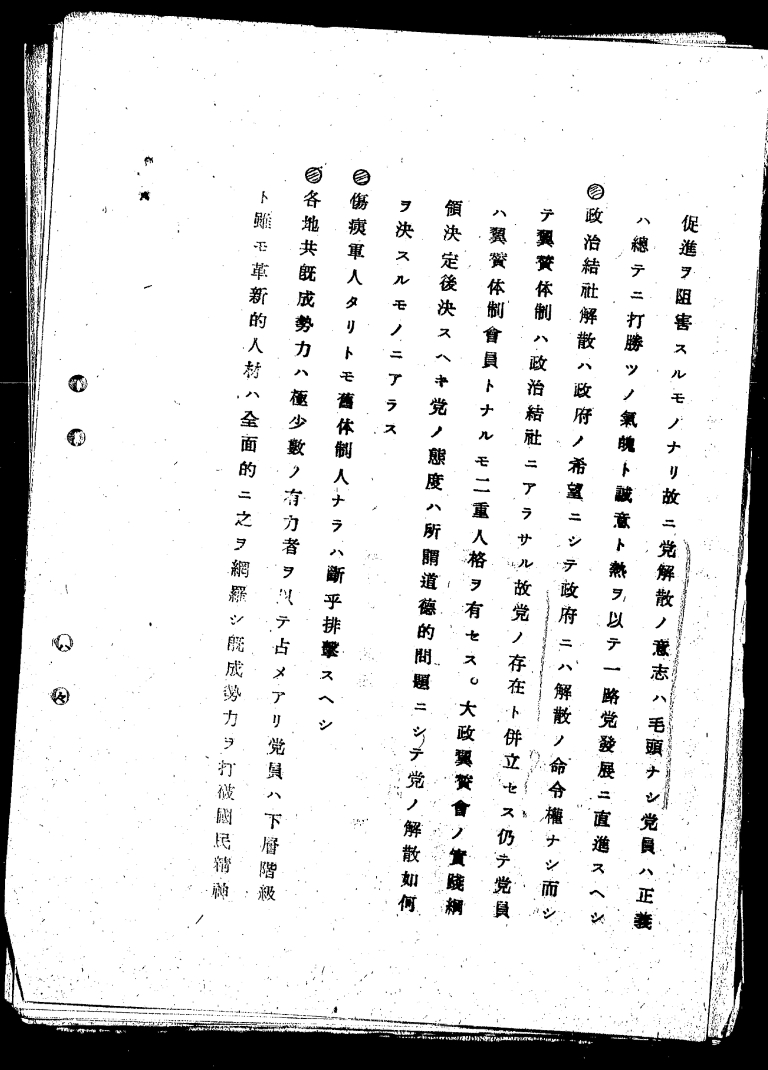 促進ヲ阻害スルモノナリ故ニ党解散ノ意志ハ毛頭ナシ党員ハ正義
ハ總テニ打勝ツノ氣魄ト誠意ト熱ヲ以テ一路党發展ニ直進スヘシ
政治結社解散ハ政府ノ希望ニシテ政府ニハ解散ノ命令權ナシ而シ
テ翼賛体制ハ政治結社ニアラサル故党ノ存在ト併立セス仍テ党員
ハ翼賛体制會員トナルモ二重人格ヲ有セス。大政翼賛會ノ實踐綱
領決定後決スヘキ党ノ態度ハ所謂道德的問題ニシテ党ノ解散如何
ヲ決スルモノニアラス
傷痍軍人タリトモ舊体制人ナラハ斷乎排撃スヘシ
各地共既成勢力ハ極少數ノ有力者ヲ以テ占メアリ党員ハ下層階級
ト雖モ革新的人材ハ全面的ニ之ヲ網羅シ既成勢力ヲ打破國民精神